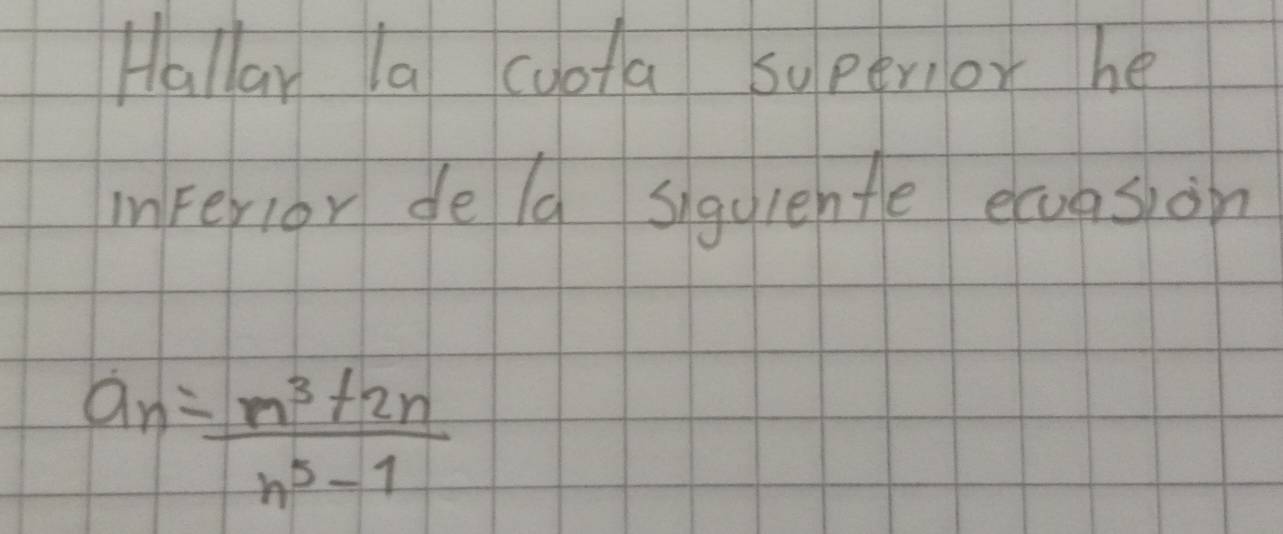 Hallar la cuota superior he
inferior de la siguiente ecuasión
an = m³+2n
n⁵-1